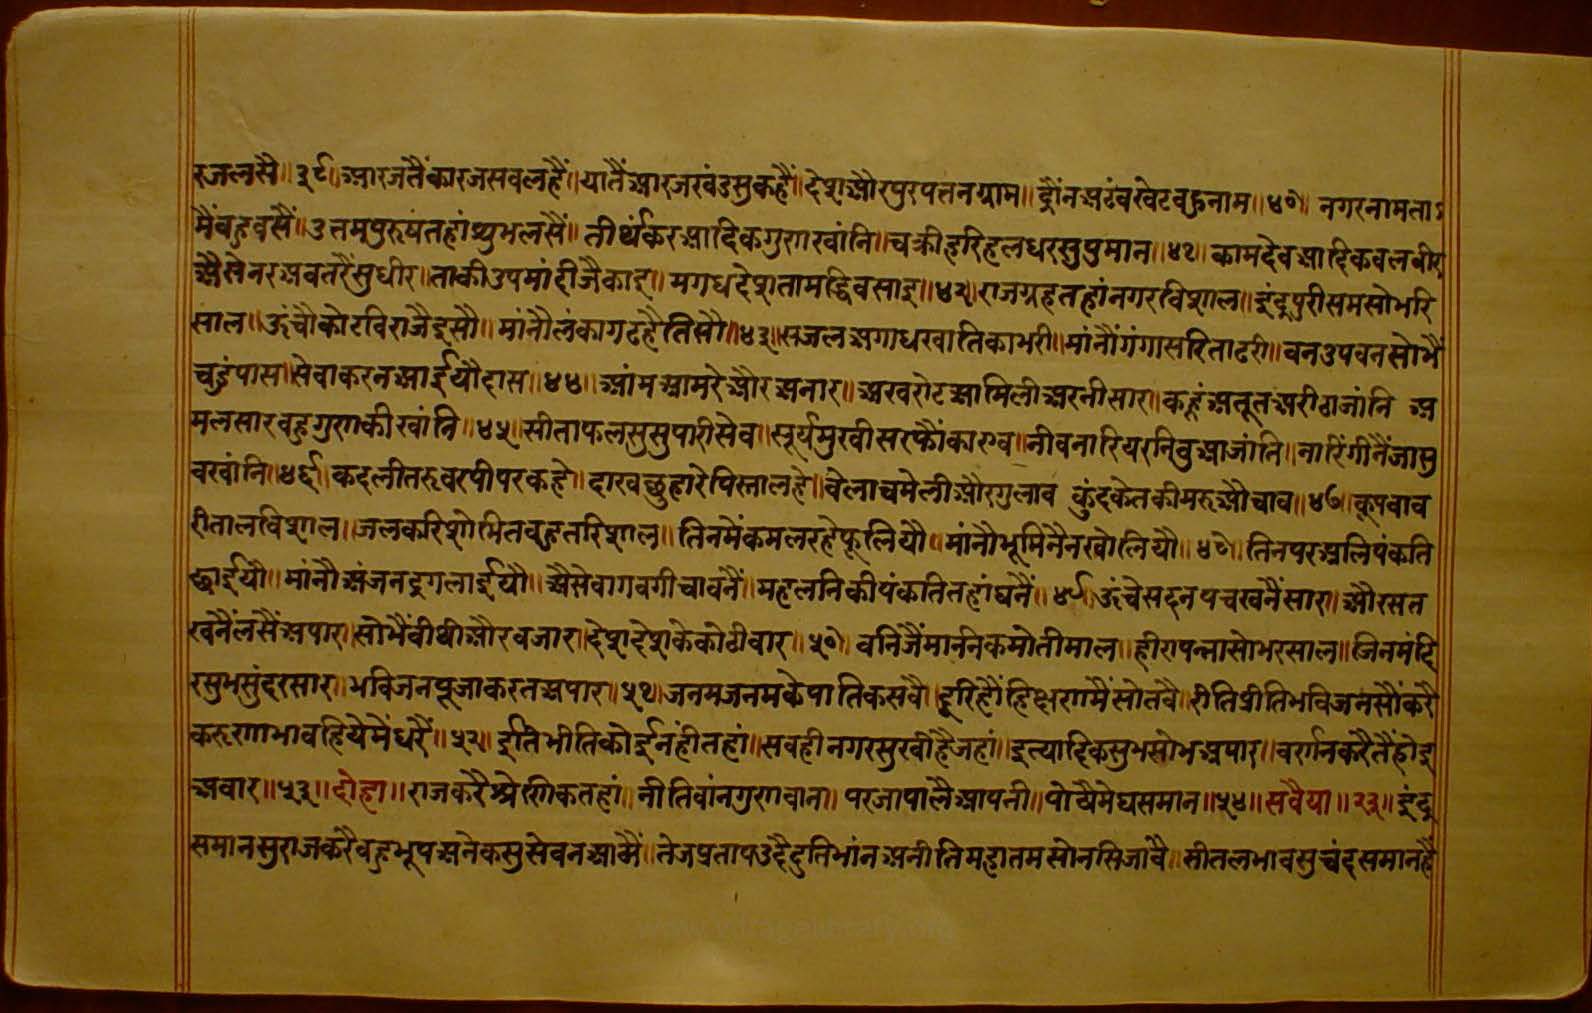 रजलसै॥३९॥आरजतैंकारजसवलहैं॥यातैंआरजखंडसुकहैं॥देशऔरपुरपत्तनग्राम॥द्रौंनअटंवखेटवहुनाम॥४०॥ नगरनामता
मैंवहुवसैं॥उत्तमपुरुषतहांशुभलसैं॥तीर्थंकरआदिकगुणखांनि॥चक्रीहरिहलधरसुपुमान॥४१॥ कामदेवआदिकवलवीर
औसेनरअवतरैंसुधीर॥ताकीउपमांदीजैकाइ॥मगधदेशतामद्धिवसाइ॥४२॥राजगृहतहांनगरविशाल॥इंद्रपुरीसमसोभरि
साल॥ऊंचौकोटविराजैइसौ॥मांनौलंकागढहैतिसौ॥४३॥सजलअगाधखातिकाभरी॥मांनौंगंगासरिताढरी॥वनउपवनसोभैं
चहुंपास॥सेवाकरनआईयौंदास॥४४॥आंमआमरेऔरअनार॥अखरोटआमिलीअरनीसार॥कहूंअतूतअरीठाजांनि अ
मलसारवहुगुणकीखांनि॥४५॥सीताफलसुसुपारीसेव॥सूर्यमुखीसरफौंकाएव॥नीवनारियरनिवुआजांनि॥नारिंगीनैंजासु
वखांनि॥४६॥कदलीतरूवरपीपरकहे॥दाखछुहारेपिस्तालहे॥वेलाचमेलीऔरगुलाव कुंदकेतकीमरूऔचाव॥४७॥कूपवाव
रीतालविशाल॥जलकरिशोभितवहुतरिशाल॥तिनमेंकमलरहेफूलियौ॥मांनौभूमिनैनखोलियौ॥४८॥तिनपरअलिपंकति
छाईयौ॥मांनौअंजनदृगलाईयौ॥औसेवागवगीचावनैं॥महलनिकीपंकतितहांघनैं॥४९॥ऊंचेसदनपचखनैंसार॥औरसत
खनैंलसैंअपार॥सोभैंवीथीऔरवजार॥देशदेशकेकोठीवार॥५०॥वनिजैंमाननिकमोतीमाल॥हीरापन्नासोभरसाल॥जिनमंदि
रसुभसुंदरसार॥भविजनपूजाकरतअपार॥५१॥जनमजनमकेपातिकसवै॥दूरिहौंहिक्षणमैंसोतवै॥रीतिप्रीतिभविजनसौंकरै
करुणाभावहियेमेंधरैं॥५२॥ईतिभीतिकोईनहीतहां॥सवहीनगरसुखीहैजहां॥इत्यादिकसुभसोभअपार॥वरननकरैतैंहोइ
अवार॥५३॥दोहा॥राजकरैश्रेणिकतहां॥नीतिवांनगुणवान॥परजापालैआपनी॥पोषैमेघसमान॥५४॥सवैया॥२३॥इंद्र
समानसुराजकरैवहुभूपअनेकसुसेवनआमैं॥तेजप्रतापउदैदुतिभांनअनीतिमहातमसोनसिजावै॥सीतलभावसुचंदसमानहै